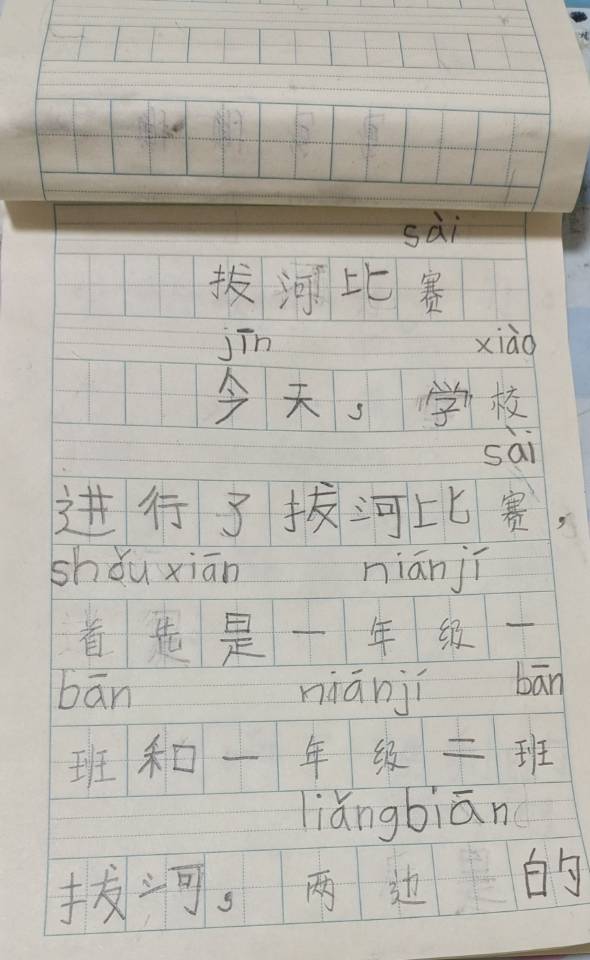 sài
拔河比赛
jīn xiào
今天，学校
sài
进行了拔河比赛，
shǒuxiān niánjí
首先是一年级一
bān niánjí bān
班和一年级二班
liǎngbiān
拔河，两边的